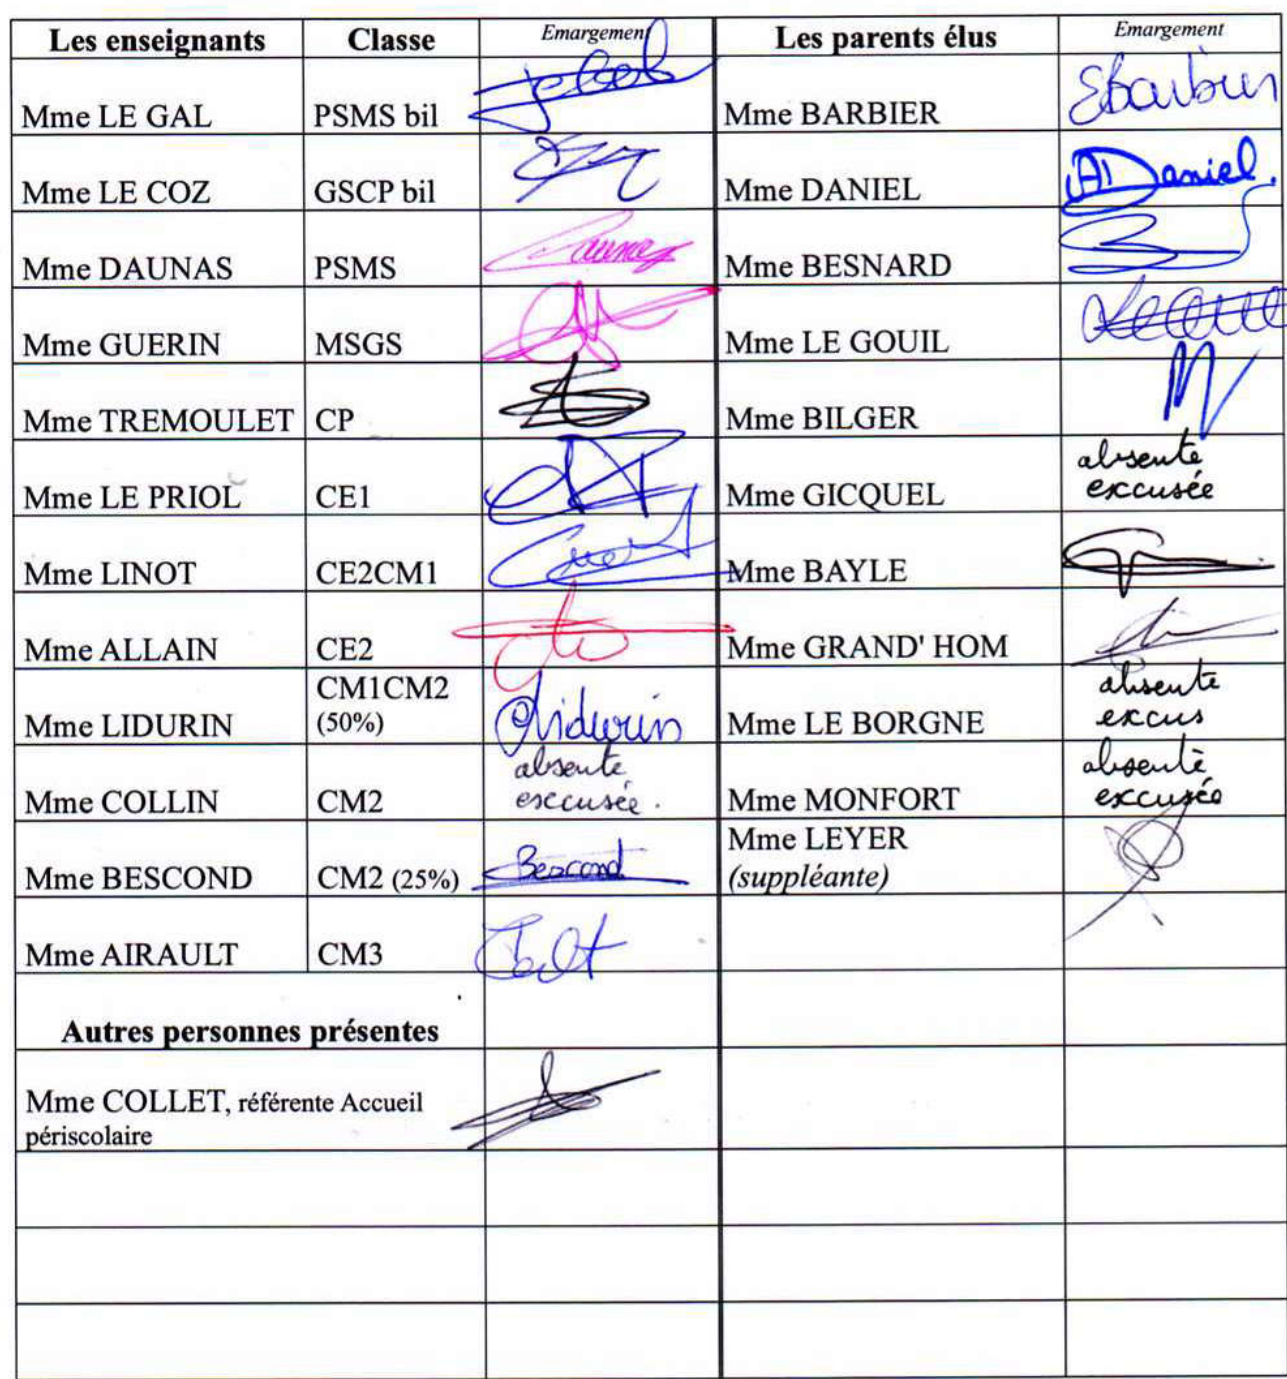 Les enseignants Classe Emargement Les parents élus Emargement
Mme LE GAL PSMS bil Mme BARBIER
Mme LE COZ GSCP bil Mme DANIEL Daniel
Mme DAUNAS PSMS Mme BESNARD
Mme GUERIN MSGS Mme LE GOUIL
Mme TREMOULET CP Mme BILGER
Mme LE PRIOL CE1 Mme GICQUEL absente
excusée
Mme LINOT CE2CM1 Mme BAYLE
Mme ALLAIN CE2 Mme GRAND' HOM
Mme LIDURIN CM1CM2
(50%) Lidurin Mme LE BORGNE absente
excus
Mme COLLIN CM2 absente
excusée. Mme MONFORT absente
excusée
Mme BESCOND CM2 (25%) Bescond Mme LEYER
(suppléante)
Mme AIRAULT CM3
Autres personnes présentes
Mme COLLET, référente Accueil
périscolaire